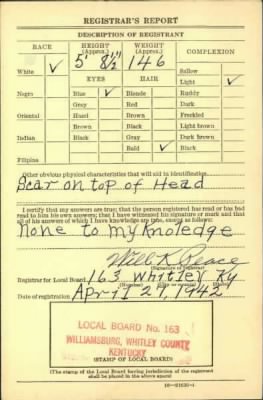 REGISTRAR'S REPORT
DESCRIPTION OF REGISTRANT
RACE HEIGHT (Approx.) WEIGHT (Approx.) COMPLEXION
5' 8½" 146
White ✓ Sallow
EYES HAIR Light ✓
Negro Blue ✓ Blonde Ruddy
Gray Red Dark
Oriental Hazel Brown Freckled
Brown Black Light brown
Indian Black Gray Dark brown
Bald ✓ Black
Filipino
Other obvious physical characteristics that will aid in identification
Scar on top of Head
I certify that my answers are true; that the person registered has read or has had
read to him his own answers; that I have witnessed his signature or mark and that
all of his answers of which I have knowledge are true, except as follows:
None to my Knoledge
Will K Peace
(Signature of registrar)
Registrar for Local Board 163 Whitley Ky
Date of registration April 27, 1942
LOCAL BOARD No. 163
WILLIAMSBURG, WHITLEY COUNTY
KENTUCKY
(STAMP OF LOCAL BOARD)
(The stamp of the Local Board having jurisdiction of the registrant
shall be placed in the above space)